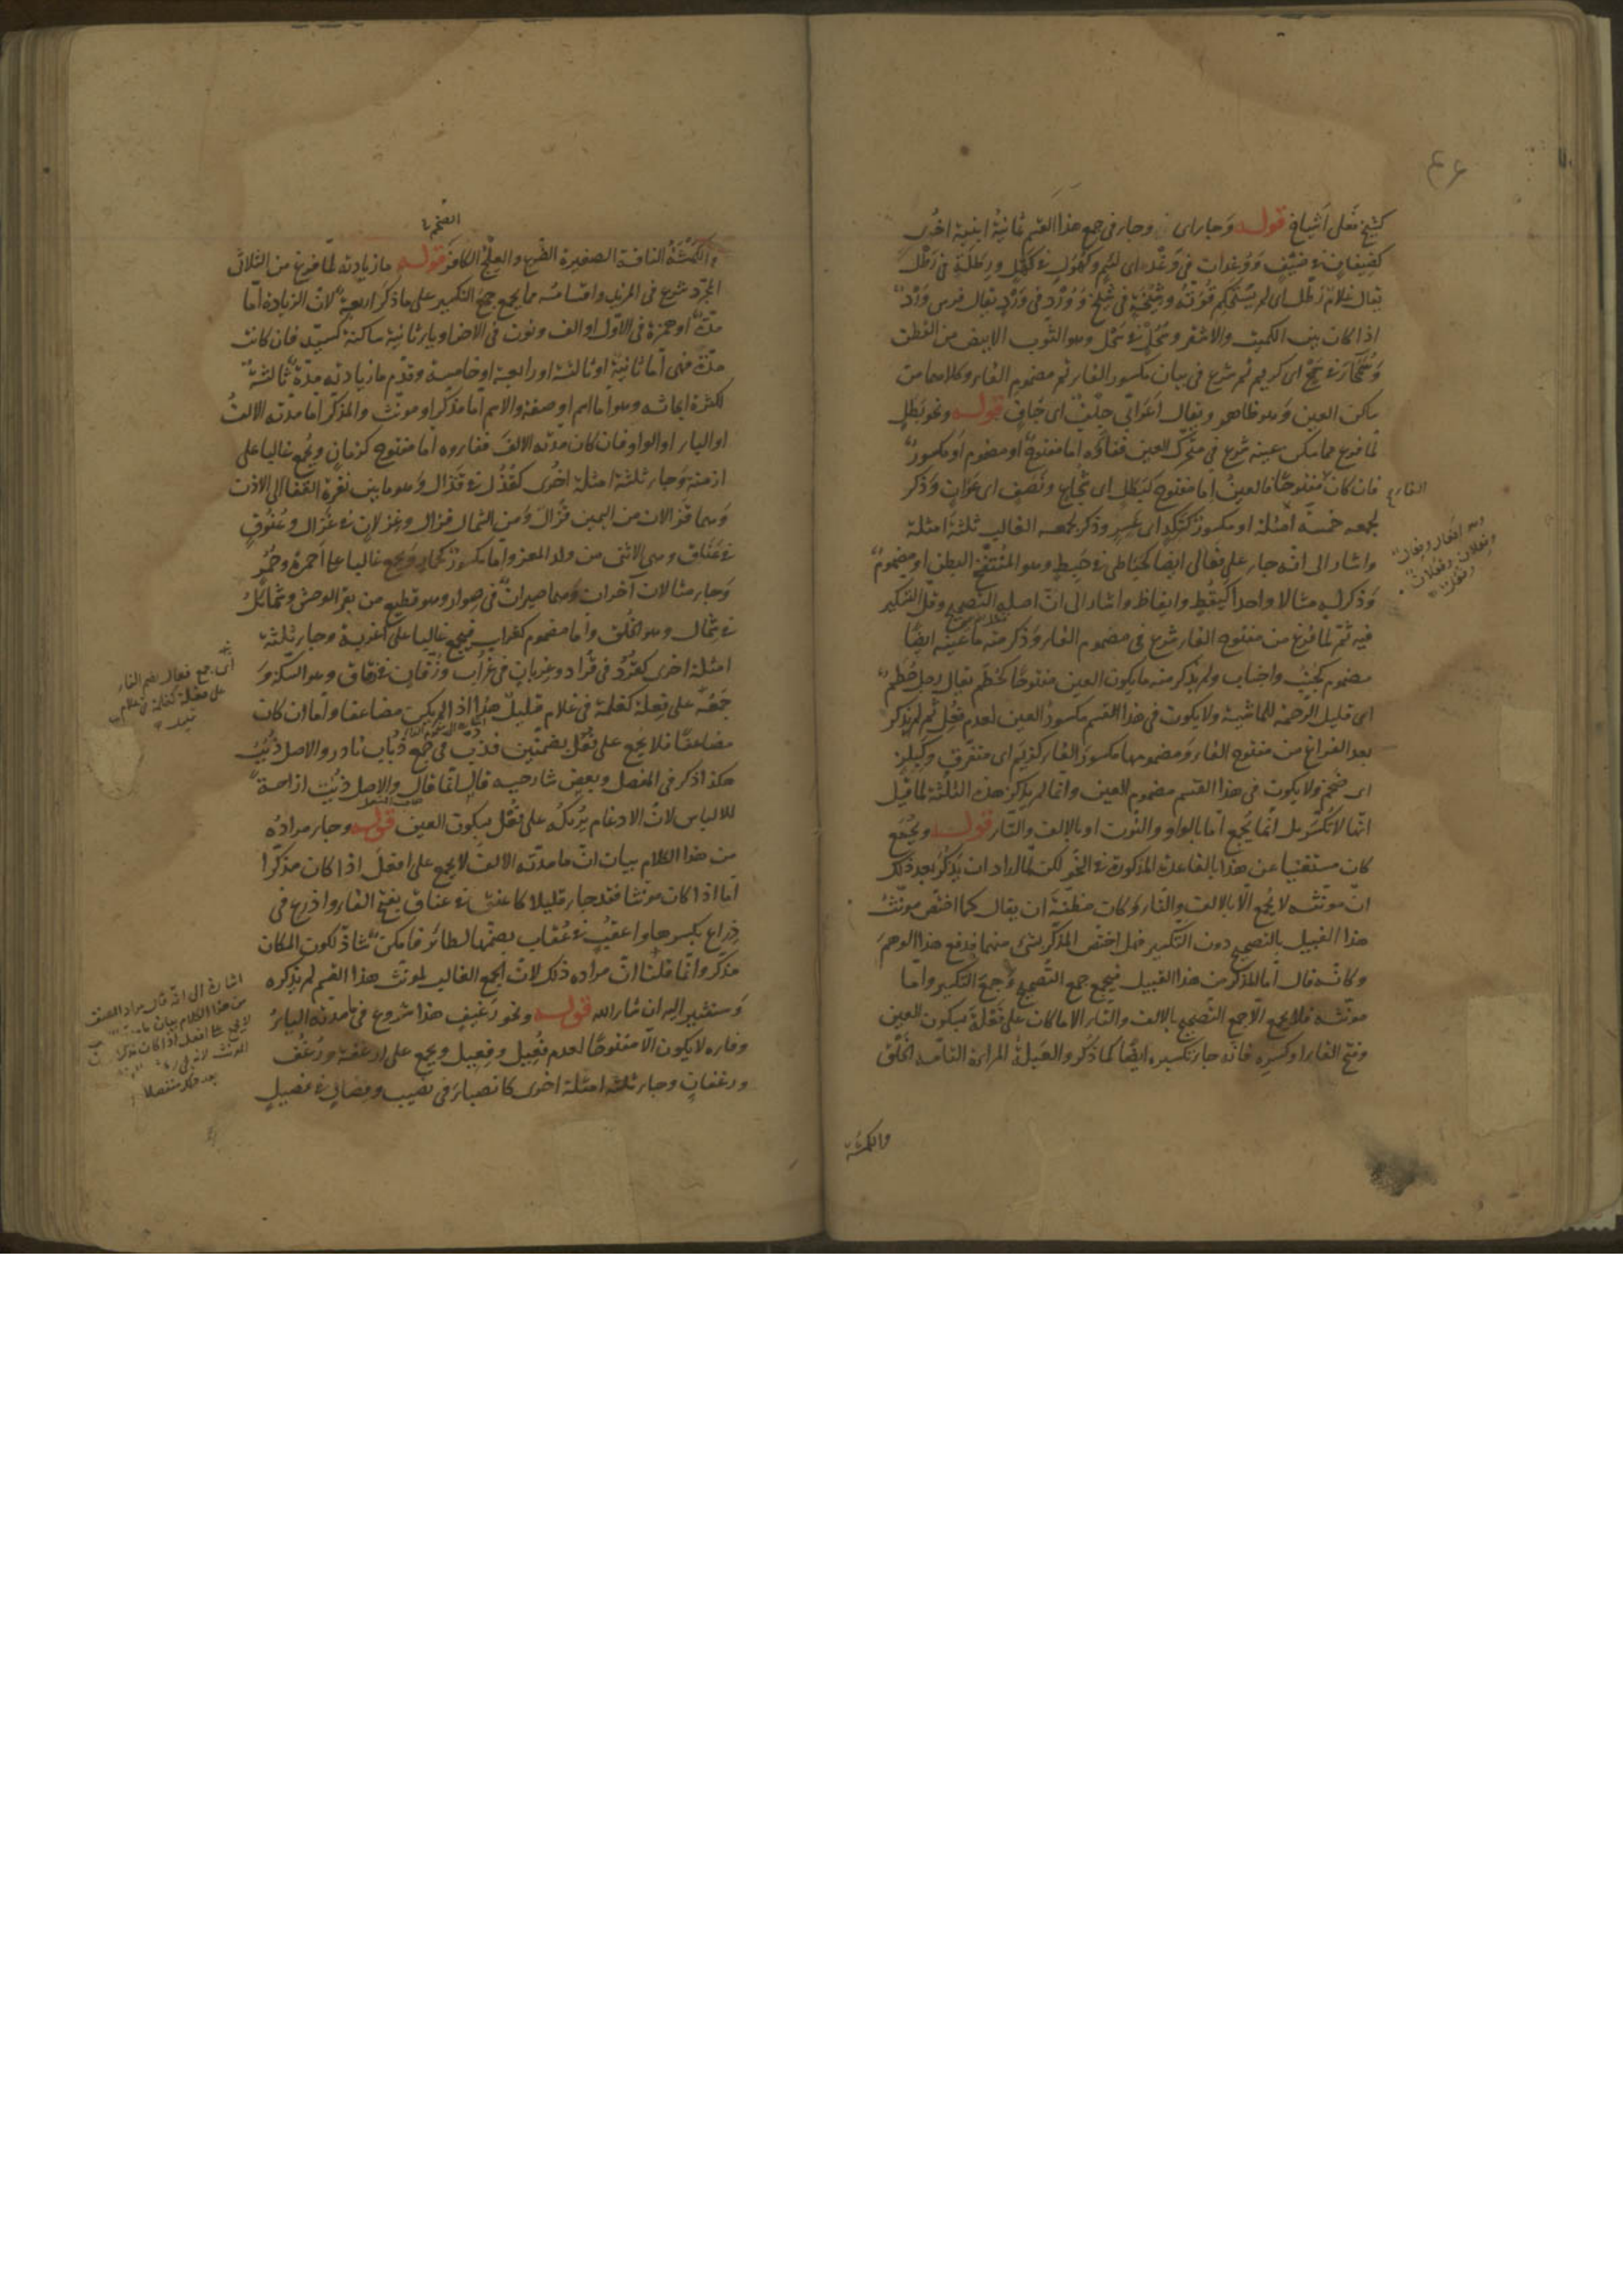 كشيخ فعلى اشياخ قوله وجاء اى وجاء فى جمع هذا القسم ثمانية ابنية اخرى
كضيفان فى ضيف ووغدان فى وغد اى لئيم وكهول فى كهل ورطلة فى رطل
يقال غلام رطل اى لم يستحكم قوته وشيخة فى شيخ وورد فى ورد يقال فرس ورد
اذا كان بين الكميت والاشقر وسحل فى سحل وهو الثوب الابيض من القطن
وسمحاء فى سمح اى كريم ثم شرع فى بيان مكسور الفاء ثم مضموم الفاء وكلاهما من
ساكن العين وهو ظاهر ويقال اعرابى جلف اى جاف قوله ونحو بطل
لما فرغ مما سكن عينه شرع فى متحرك العين ففاؤه اما مفتوح او مضموم او مكسور
فان كان مفتوحا فالعين اما مفتوح كبطل اى شجاع ونصف اى عوان وذكر
لجمعه خمسة امثلة او مكسور كنكد اى عسر وذكر لجمعه الغالب ثلثة امثلة
واشار الى انه جاء على فعالى ايضا كحباطى فى حبط وهو المنتفخ البطن او مضموم
وذكر له مثالا واحدا كيقظ وايقاظ واشار الى ان اصله التصحيح وقل التكسير
فيه ثم لما فرغ من مفتوح الفاء شرع فى مضموم الفاء وذكر منه ما عينه ايضا
مضموم كجنب واجناب ولم يذكر منه ما يكون العين مفتوحا كحطم يقال رجل حطم
اى قليل الرحمة للماشية ولا يكون فى هذا القسم مكسور العين لعدم فعل ثم لم يذكر
بعد الفراغ من مفتوح الفاء ومضمومها مكسور الفاء كزيم اى متفرق وكبلز
اى ضخم ولا يكون فى هذا القسم مضموم العين وانما لم يذكر هذه الثلثة لما قيل
انها لا تكسر بل انما يجمع اما بالواو والنون او بالالف والتاء قوله ويجمع
كان مستغنيا عن هذا بالقاعدة المذكورة فى النحو لكن لما اراد ان يذكر بعد ذلك
ان مونثه لا يجمع الا بالالف والتاء وكان مظنة ان يقال كما اختص مونث
هذا القبيل بالتصحيح دون التكسير فهل اختص المذكر بشئ منهما فدفع هذا الوهم
وكانه قال اما المذكر من هذا القبيل فيجمع جمع التصحيح وجمع التكسير واما
مونثه فلا يجمع الا جمع التصحيح بالالف والتاء الا ما كان على فعلة بسكون العين
وفتح الفاء او كسره فانه جاء تكسيره ايضا كما ذكر والعبلة المراة التامة الخلق
والكمشة
والكمشة الناقة الصغيرة الضرع والعلج الكافر قوله ما زيادته لما فرغ من الثلاثى
المجرد شرع فى المزيد واقسامه مما يجمع جمع التكسير على ما ذكر اربعة لان الزيادة اما
مدة او همزة فى الاول او الف ونون فى الاخر او ياء ثانية ساكنة كسيد فان كانت
مدة فهى اما ثانية او ثالثة او رابعة او خامسة وقدم ما زيادته مدة ثالثة
لكثرة ابحاثه وهو اما اسم او صفة والاسم اما مذكر او مونث والمذكر اما مدته الالف
او الياء او الواو فان كان مدته الالف ففاءه اما مفتوح كزمان ويجمع غالبا على
ازمنة وجاء ثلثة امثلة اخرى كقذل فى قذال وهو ما بين نقرة القفا الى الاذن
وهما قذالان من اليمين قذال ومن الشمال قذال وغزلان فى غزال وعنوق
فى عناق وهى الانثى من ولد المعز واما مكسور كحمار ويجمع غالبا على احمرة وحمر
وجاء مثالان آخران وهما صيران فى صوار وهو قطيع من بقر الوحش وشمائل
فى شمال وهو الخلق واما مضموم كغراب فيجمع غالبا على اغربة وجاء ثلثة
امثلة اخرى كقرد فى قراد وغربان فى غراب وزقان فى زقاق وهو السكة و
جمعه على فعلة كغلمة فى غلام قليل هذا اذا لم يكن مضاعفا واما ان كان
مضاعفا فلا يجمع على فعل بضمتين فذب فى جمع ذباب نادر والاصل ذبب
هكذا ذكر فى المفصل وبعض شارحيه قال انما قال والاصل ذبب ازاحة
للالباس لان الادغام يريك على فعل بسكون العين قوله وجاء مراده
من هذا الكلام بيان ان ما مدته الالف لا يجمع على افعل اذا كان مذكرا
اما اذا كان مونثا فقد جاء قليلا كاعنق فى عناق بفتح الفاء واذرع فى
ذراع بكسرها واعقب فى عقاب بضمها لطائر فامكن شاذ لكون المكان
مذكر وانما قلنا ان مراده ذلك لان الجمع الغالب لمونث هذا القسم لم يذكره
وسنشير اليه ان شاء الله قوله ونحو رغيف هذا شروع فى ما مدته الياء
وفاءه لا يكون الا مفتوحا لعدم فعيل وفعيل ويجمع على ارغفة ورغف
ورغفان وجاء ثلثة امثلة اخرى كانصباء فى نصيب وفصال فى فصيل
اى جمع فعال بضم الفاء
على فعلة كغلمة فى غلام
اشارة الى انه قال مراد المصنف
من هذا الكلام بيان
لا يجمع على افعل اذا كان مذكرا